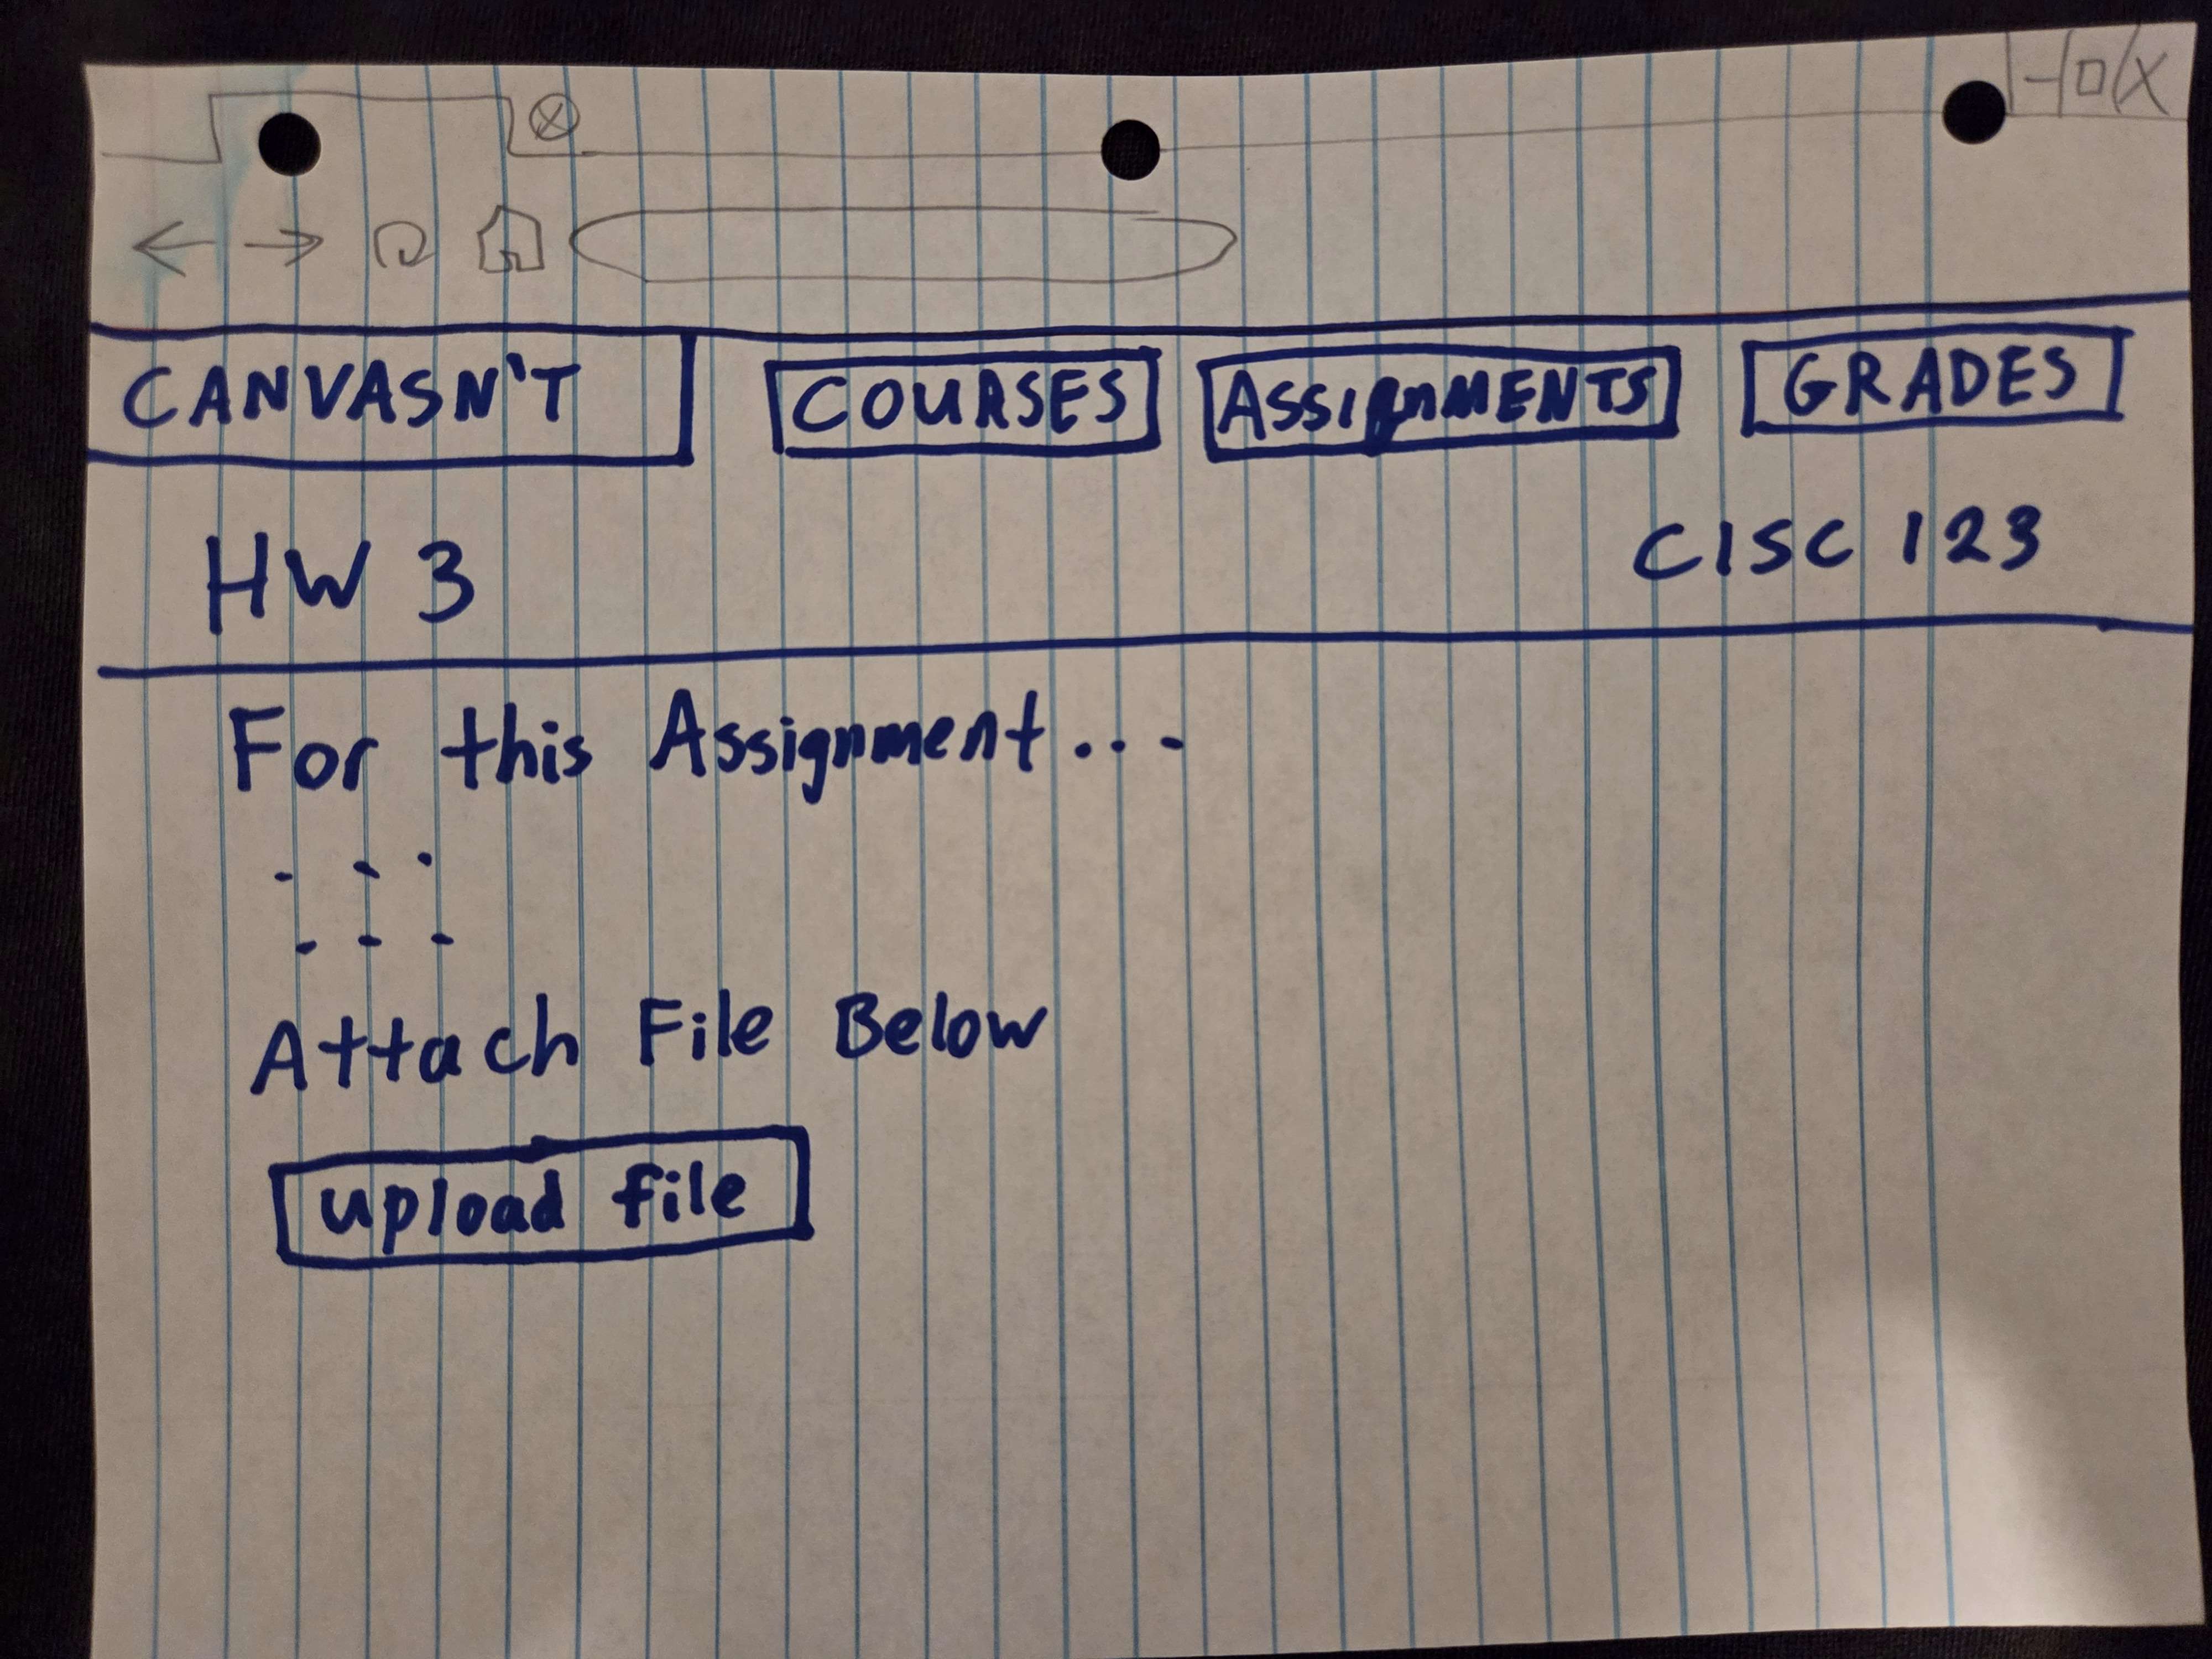 CANVASN'T COURSES ASSIgnMENTS GRADES
HW 3 CISC 123
For this Assignment...
...
...
Attach File Below
upload file